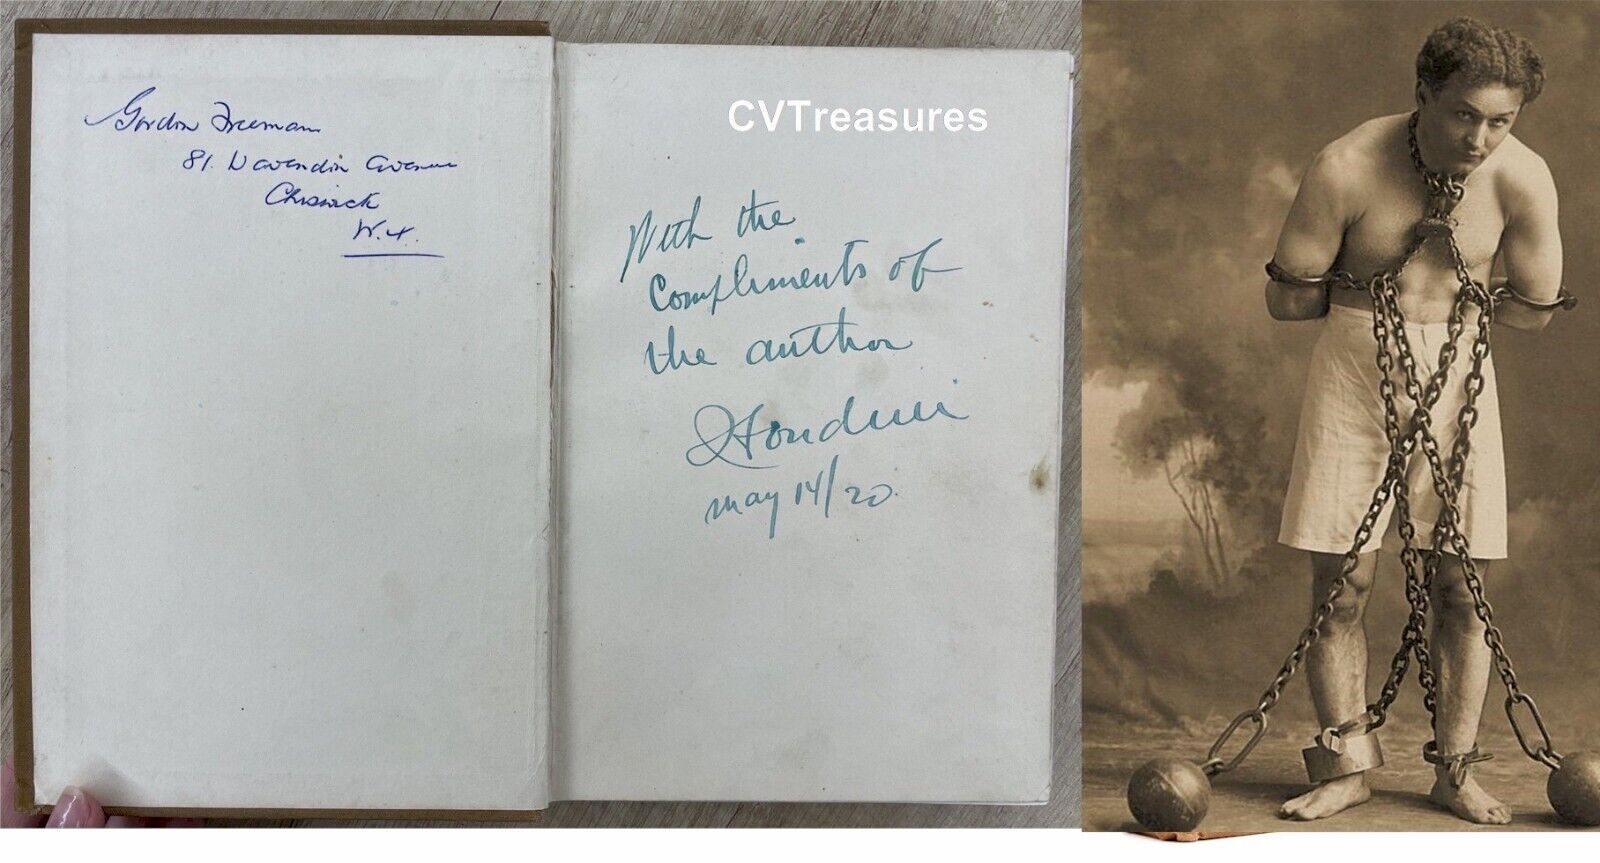 Gordon Freeman
81. Davendin Avenue
Chiswick
W.4.
CVTreasures
With the
Compliments of
the author
Houdini
May 14/20.